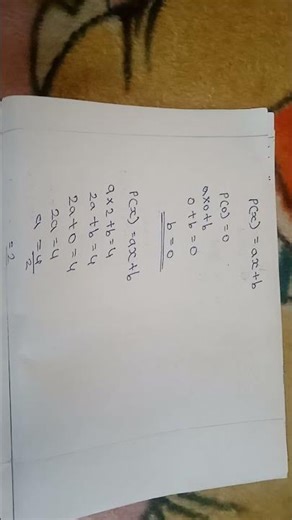 P(x) = ax+b
P(0) = 0
a×0+b
0+b = 0
b = 0
P(x) = ax+b
a×2+b = 4
2a+b = 4
2a+0 = 4
2a = 4
a = 4/2
= 2